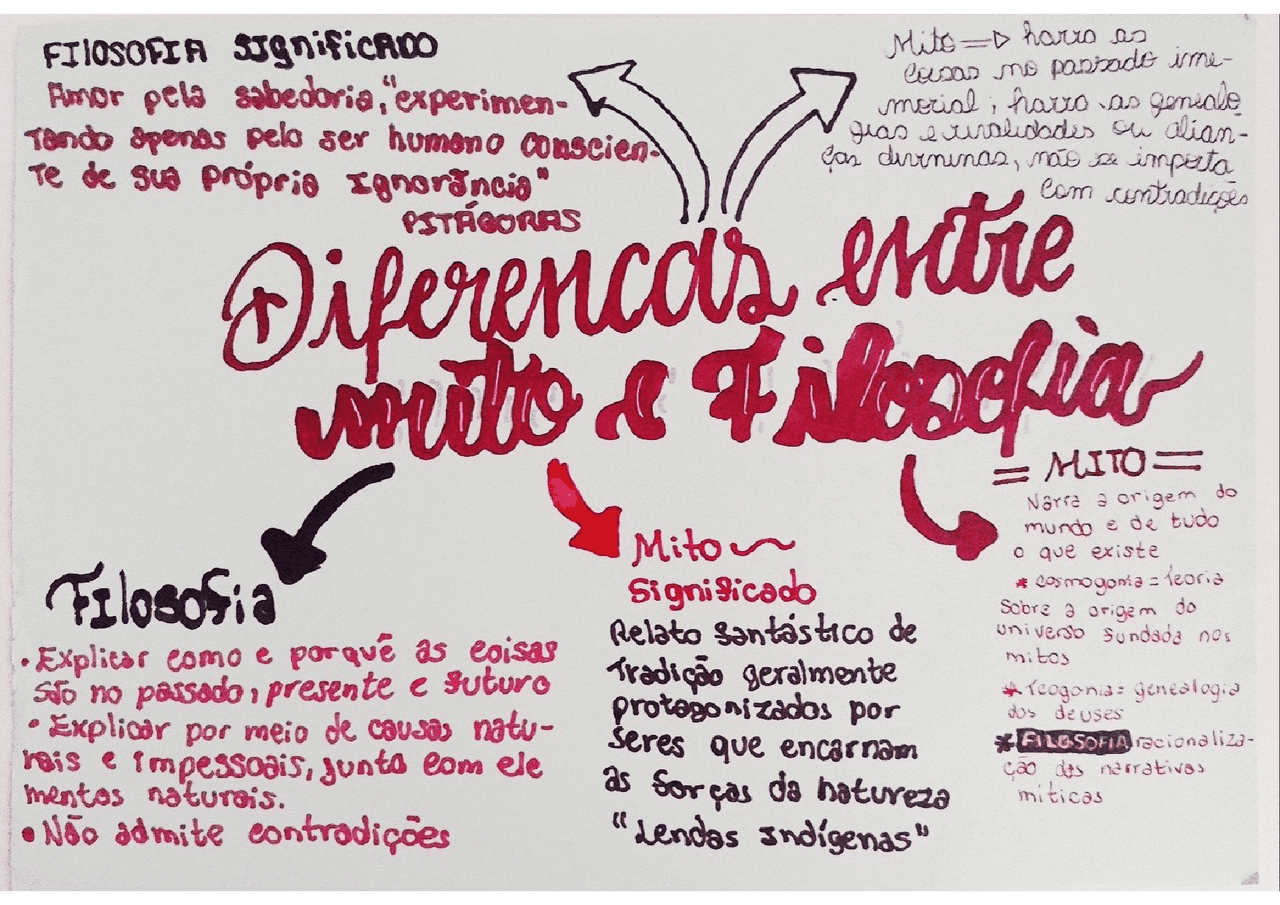 FILOSOFIA SIGNIFICADO
Amor pela sabedoria, "experimen-
tando apenas pelo ser humano conscien-
te de sua própria ignorância"
PITÁGORAS
Mito => narra as
coisas no passado ime-
morial; narra as genealo
gias e rivalidades ou alian-
ças divininas, não se importa
com contradições
Diferencas entre
mito e Filosofia
Filosofia
• Explicar como e porquê as coisas
são no passado, presente e futuro
• Explicar por meio de causas natu-
rais e impessoais, junto com ele
mentos naturais.
• Não admite contradições
Mito
significado
Relato fantástico de
tradição geralmente
protagonizados por
seres que encarnam
as forças da natureza
"Lendas indígenas"
= MITO =
Narra a origem do
mundo e de tudo
o que existe
* cosmogonia = teoria
sobre a origem do
universo fundada nos
mitos
* Teogonia = genealogia
dos deuses
* FILOSOFIA racionaliza-
ção das narrativas
míticas